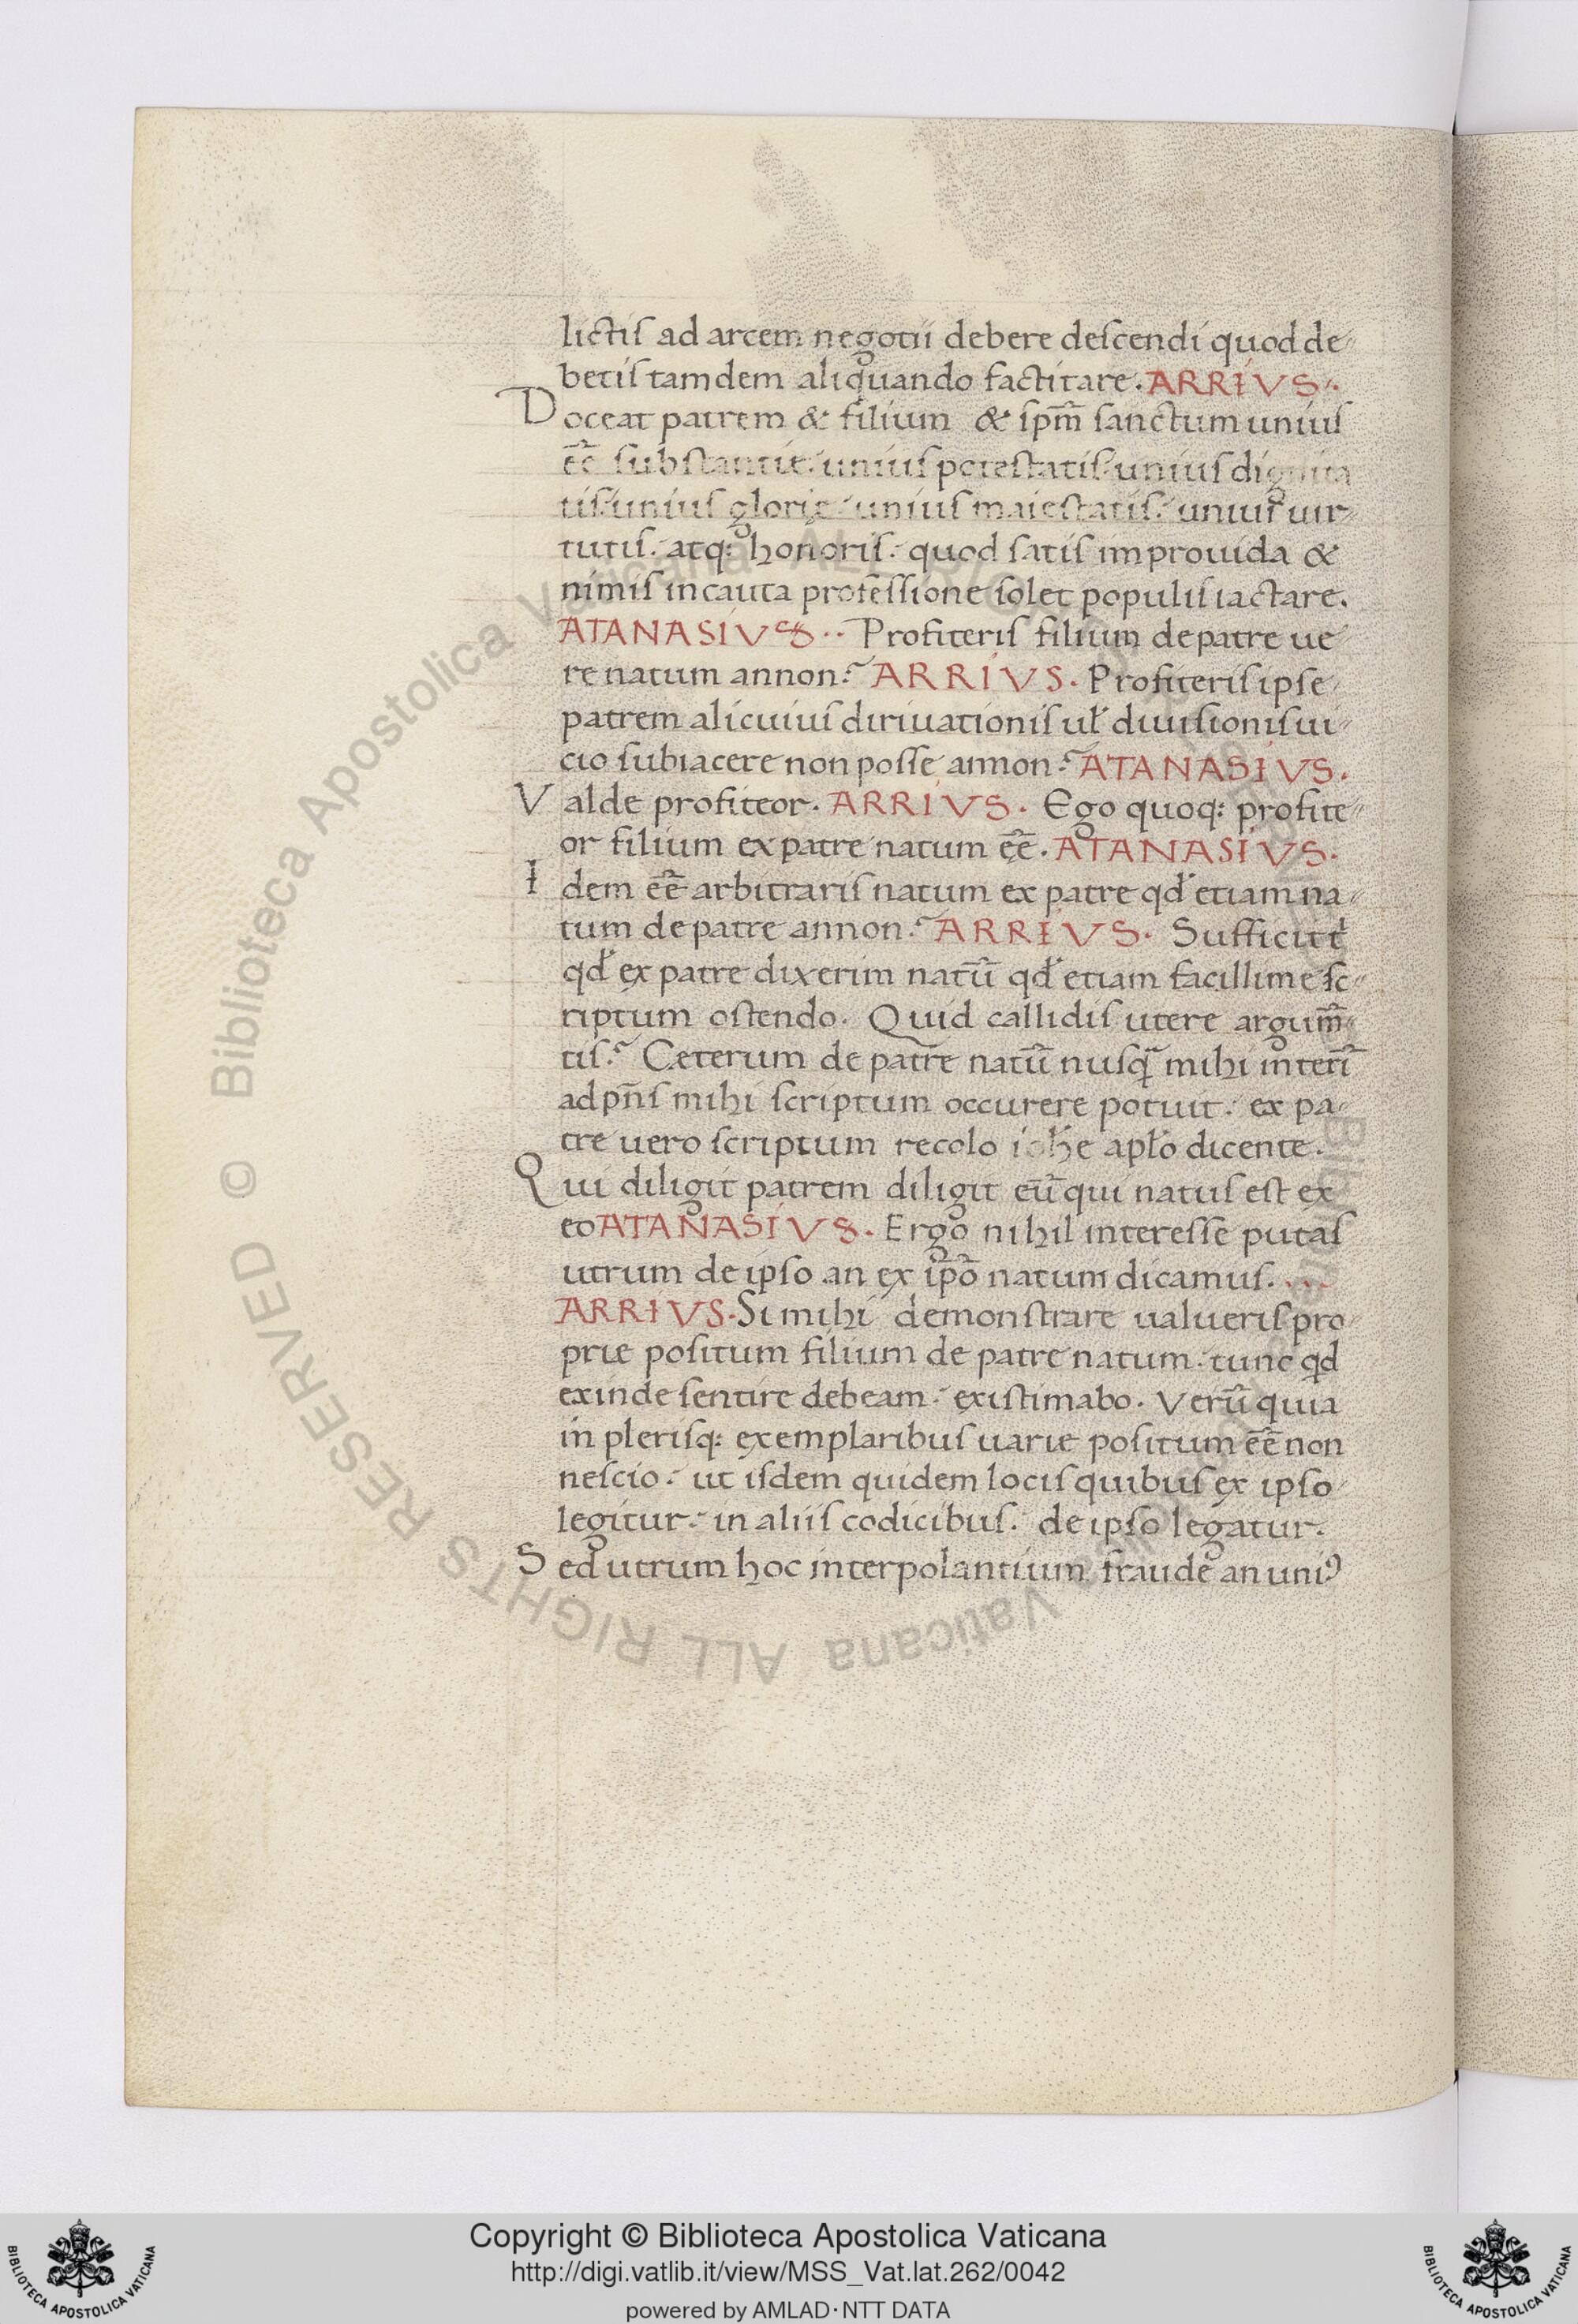 lictis ad arcem negotii debere descendi quod de-
betis tamdem aliquando factitare. ARRIVS.
Doceat patrem & filium & sp̄m sanctum unius
eē substantie. unius potestatis. unius dignita
tis. unius glorię. unius maiestatis. unius uir-
tutis. atq: honoris. quod satis improuida &
nimis incauta professione solet populis iactare.
ATANASIVS.. Profiteris filium de patre ue
re natum annon? ARRIVS. Profiteris ipse
patrem alicuius diriuationis ul̓ diuisionis ui-
cio subiacere non posse annon? ATANASIVS.
Valde profiteor. ARRIVS. Ego quoq: profite-
or filium ex patre natum ēe. ATANASIVS.
Idem ēe arbitraris natum ex patre qd̓ etiam na-
tum de patre annon? ARRIVS. Sufficit t̓
qd̓ ex patre dixerim natū qd̓ etiam facillime sc-
riptum ostendo. Quid callidis utere argum̄-
tis? Ceterum de patre natū nusq̄ mihi interī
ad pn̄s mihi scriptum occurere potuit. ex pa-
tre uero scriptum recolo ioh̓e apl̓o dicente.
Qui diligit patrem diligit eū qui natus est ex
eo ATANASIVS. Ergo nihil interesse putas
utrum de ipso an ex ip̄o natum dicamus. ...
ARRIVS. Si mihi demonstrare ualueris pro
prie positum filium de patre natum. tunc qd
exinde sentire debeam. existimabo. Verū quia
in plerisq: exemplaribus uarie positum ēe non
nescio. ut isdem quidem locis quibus ex ipso
legitur. in aliis codicibus. de ipso legatur.
Sed utrum hoc interpolantium fraude an uniꝰ
© Biblioteca Apostolica Vaticana ALL RIGHTS RESERVED
BIBLIOTECA APOSTOLICA VATICANA
Copyright © Biblioteca Apostolica Vaticana
http://digi.vatlib.it/view/MSS_Vat.lat.262/0042
powered by AMLAD·NTT DATA
BIBLIOTECA APOSTOLICA VATICANA